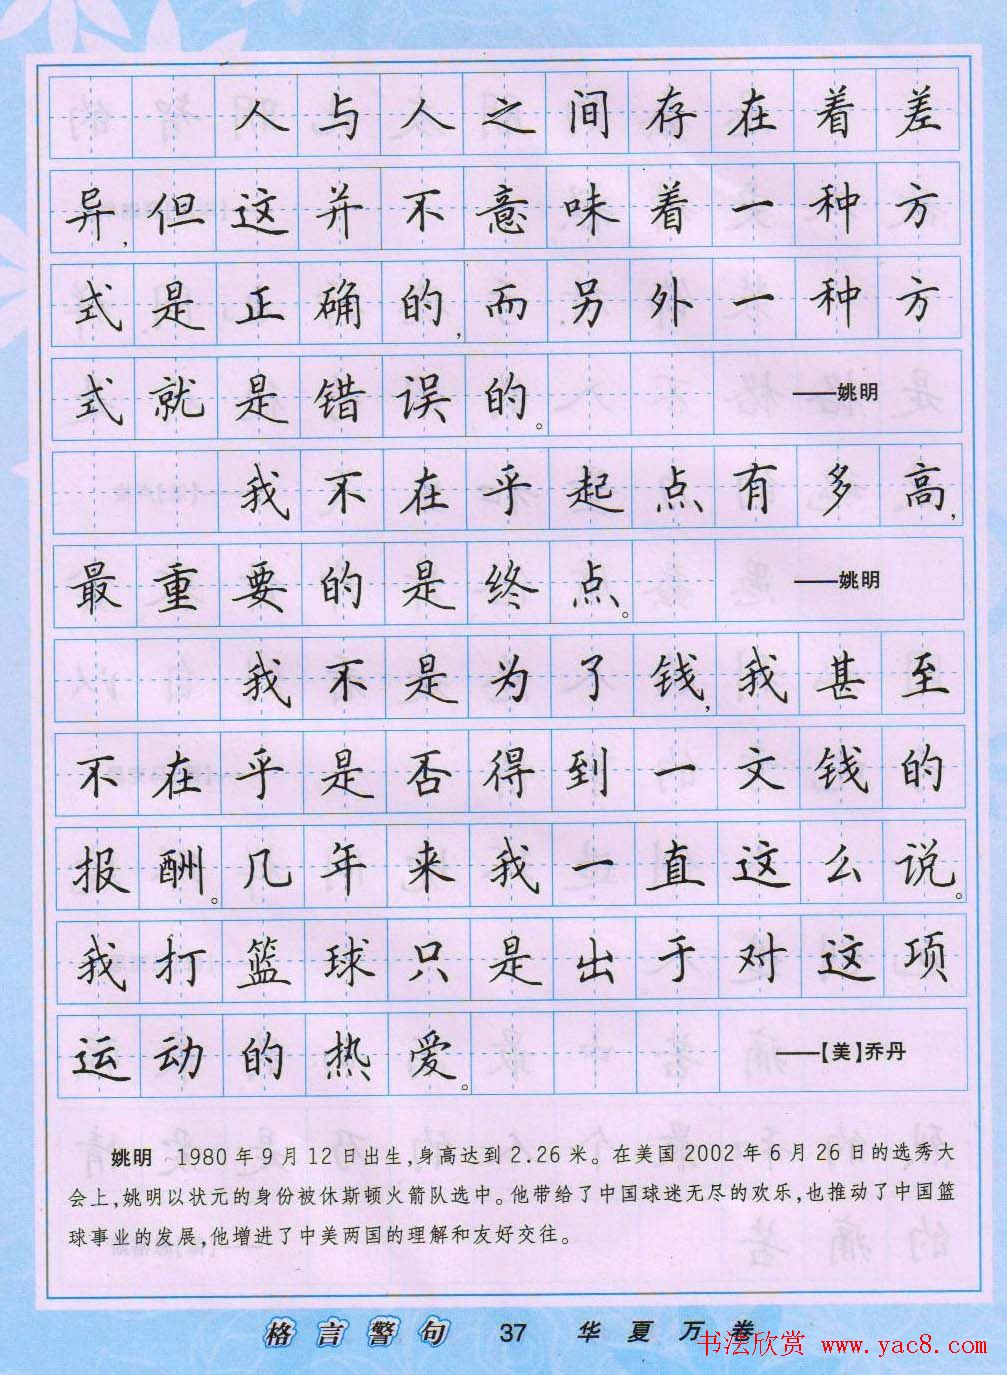 人与人之间存在着差
异,但这并不意味着一种方
式是正确的,而另外一种方
式就是错误的。 ——姚明
我不在乎起点有多高,
最重要的是终点。 ——姚明
我不是为了钱,我甚至
不在乎是否得到一文钱的
报酬。几年来我一直这么说。
我打篮球只是出于对这项
运动的热爱。 ——【美】乔丹
姚明 1980年9月12日出生,身高达到2.26米。在美国2002年6月26日的选秀大
会上,姚明以状元的身份被休斯顿火箭队选中。他带给了中国球迷无尽的欢乐,也推动了中国篮
球事业的发展,他增进了中美两国的理解和友好交往。
格言警句 37 华夏万卷
书法欣赏 www.yac8.com